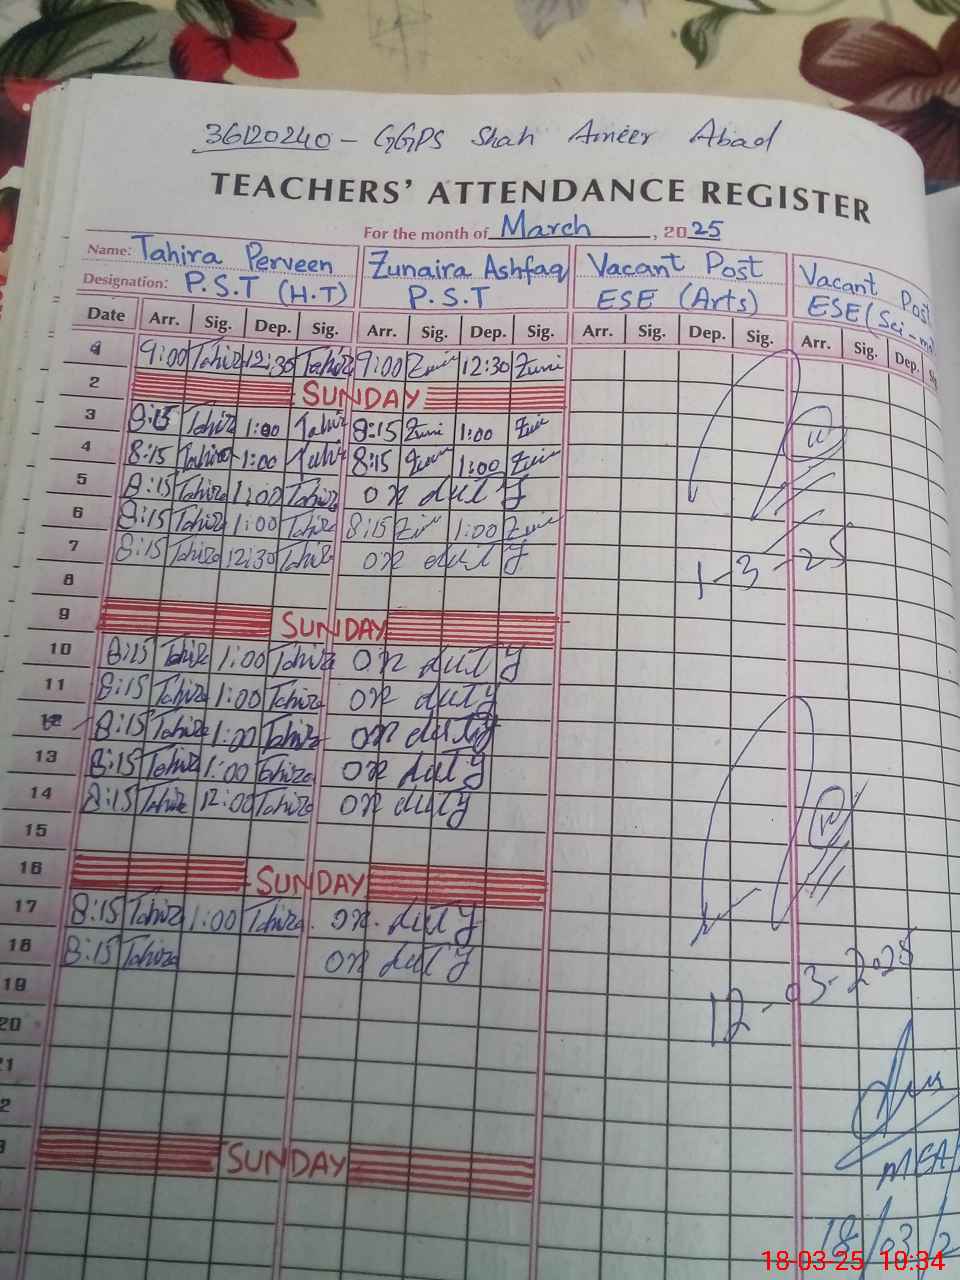 36120240 - GGPS Shah Ameer Abad
TEACHERS' ATTENDANCE REGISTER
For the month of March, 2025
Name: Tahira Perveen Zunaira Ashfaq Vacant Post Vacant Post
Designation: P.S.T (H.T) P.S.T ESE (Arts) ESE (Sci-ma
Date Arr. Sig. Dep. Sig. Arr. Sig. Dep. Sig. Arr. Sig. Dep. Sig. Arr. Sig. Dep.
9:00 Tahira 12:30 Tahira 9:00 Zuni 12:30 Zuni
2 SUNDAY
3 8:15 Tahira 1:00 Tahira 8:15 Zuni 1:00 Zuni
4 8:15 Tahira 1:00 Tahira 8:15 Zuni 1:00 Zuni
5 8:15 Tahira 1:00 Tahira on duty
6 8:15 Tahira 1:00 Tahira 8:15 Zuni 1:00 Zuni
7 8:15 Tahira 12:30 Tahira on duty
1-3-25
8
9 SUNDAY
10 8:15 Tahira 1:00 Tahira on duty
11 8:15 Tahira 1:00 Tahira on duty
12 8:15 Tahira 1:00 Tahira on duty
13 8:15 Tahira 1:00 Tahira on duty
14 8:15 Tahira 12:00 Tahira on duty
15
16 SUNDAY
17 8:15 Tahira 1:00 Tahira on duty
18 8:15 Tahira on duty
12-03-2025
19
20
SUNDAY
MEA
18/03/2
18-03-25 10:34